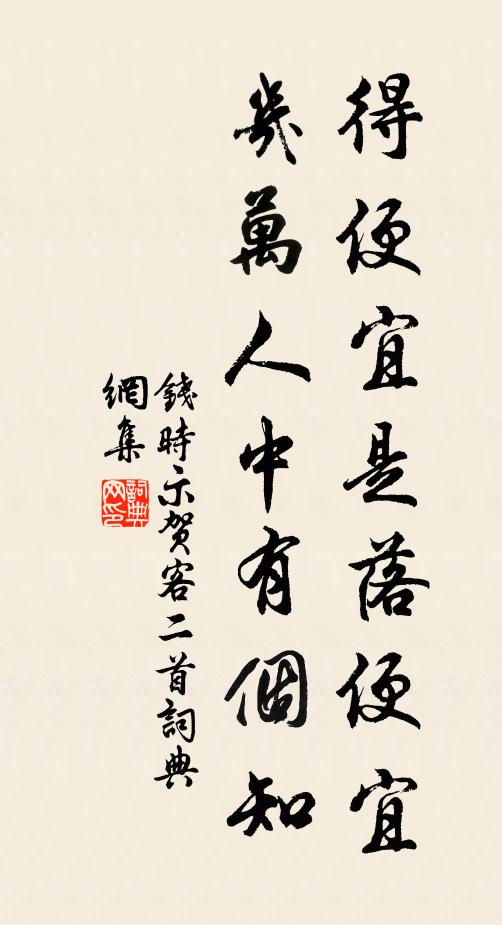 得便宜是落便宜
幾萬人中有個知
錢時示賀客二首詞典
網集
詞典網印